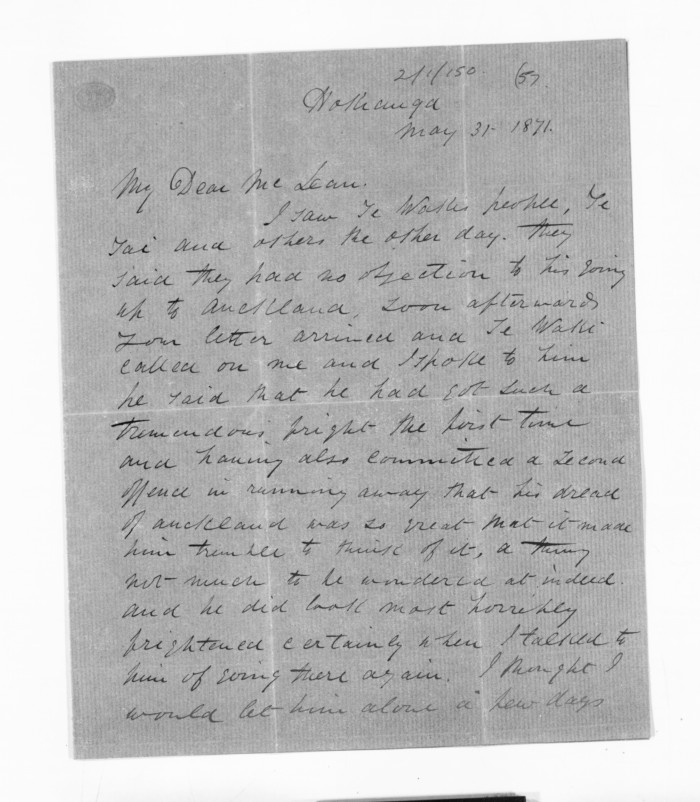 2/1/150. (5).
Hokianga
May 31- 1871.
My Dear Mc Lean.
I saw Te Wakis people, Te
Tai and others the other day. they
said they had no objection to his going
up to Auckland, soon afterwards
your letter arrived and Te Waki
called on me and I spoke to him
he said that he had got such a
tremendous fright the first time
and having also committed a second
offence in running away that his dread
of auckland was so great that it made
him tremble to think of it, a thing
not much to be wondered at indeed.
and he did look most horribly
frightened certainly when I talked to
him of going there again. I thought I
would let him alone a few days